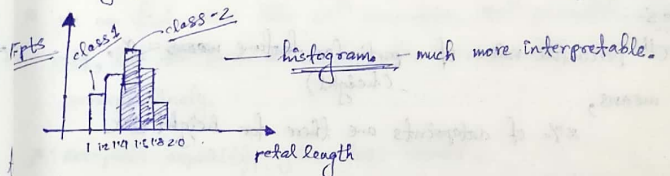 class-2
class 1
Fpts
histogram - much more interpretable.
1 1.2 1.4 1.6 1.8 2.0
petal length